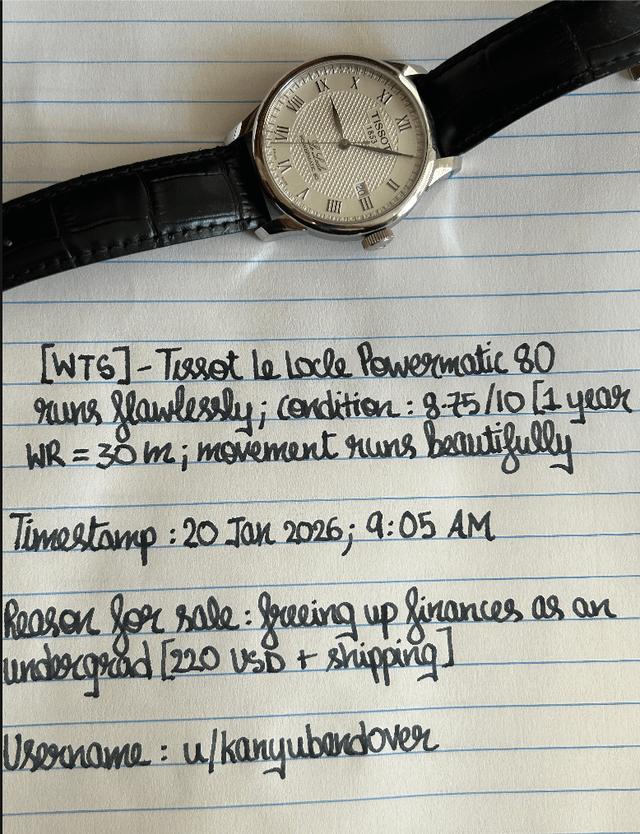 TISSOT
1853
Le Locle
[WTS] - Tissot Le Locle Powermatic 80
runs flawlessly; condition : 8.75/10 [1 year
WR = 30 m; movement runs beautifully
Timestamp : 20 Jan 2026; 9:05 AM
Reason for sale : freeing up finances as an
undergrad [220 USD + shipping]
Username : u/kanyubendover